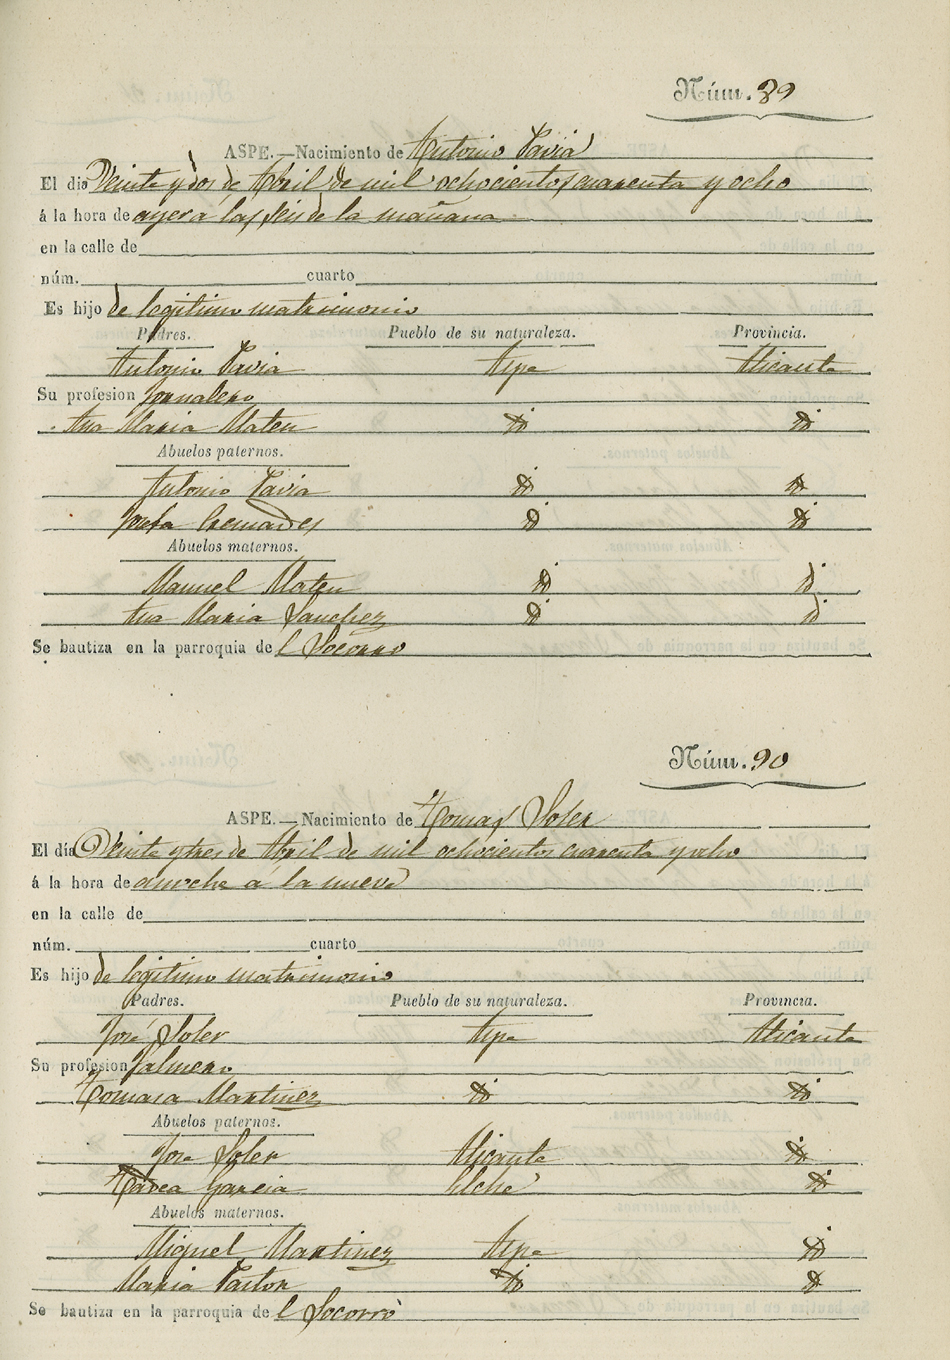 Núm. 89
ASPE.—Nacimiento de Antonio Pavia
El dia Veinte y dos de Abril de mil ochocientos cuarenta y ocho
á la hora de ayer á las seis de la mañana
en la calle de
núm. cuarto
Es hijo de legitimo matrimonio
Padres. Pueblo de su naturaleza. Provincia.
Antonio Pavia Aspe Alicante
Su profesion Jornalero
Ana Maria Mateu id id
Abuelos paternos.
Antonio Pavia id id
Josefa Cremades id id
Abuelos maternos.
Manuel Mateu id id
Ana Maria Sanchez id id
Se bautiza en la parroquia de l Socorro
Núm. 90
ASPE.—Nacimiento de Tomas Soler
El día Veinte y tres de Abril de mil ochocientos cuarenta y ocho
á la hora de anoche á la nueve
en la calle de
núm. cuarto
Es hijo de legitimo matrimonio
Padres. Pueblo de su naturaleza. Provincia.
José Soler Aspe Alicante
Su profesion Palmero
Tomasa Martinez id id
Abuelos paternos.
Jose Soler Alicante id
Garcia Elche id
Abuelos maternos.
Miguel Martinez Aspe id
Maria Pastor id id
Se bautiza en la parroquia de l Socorro